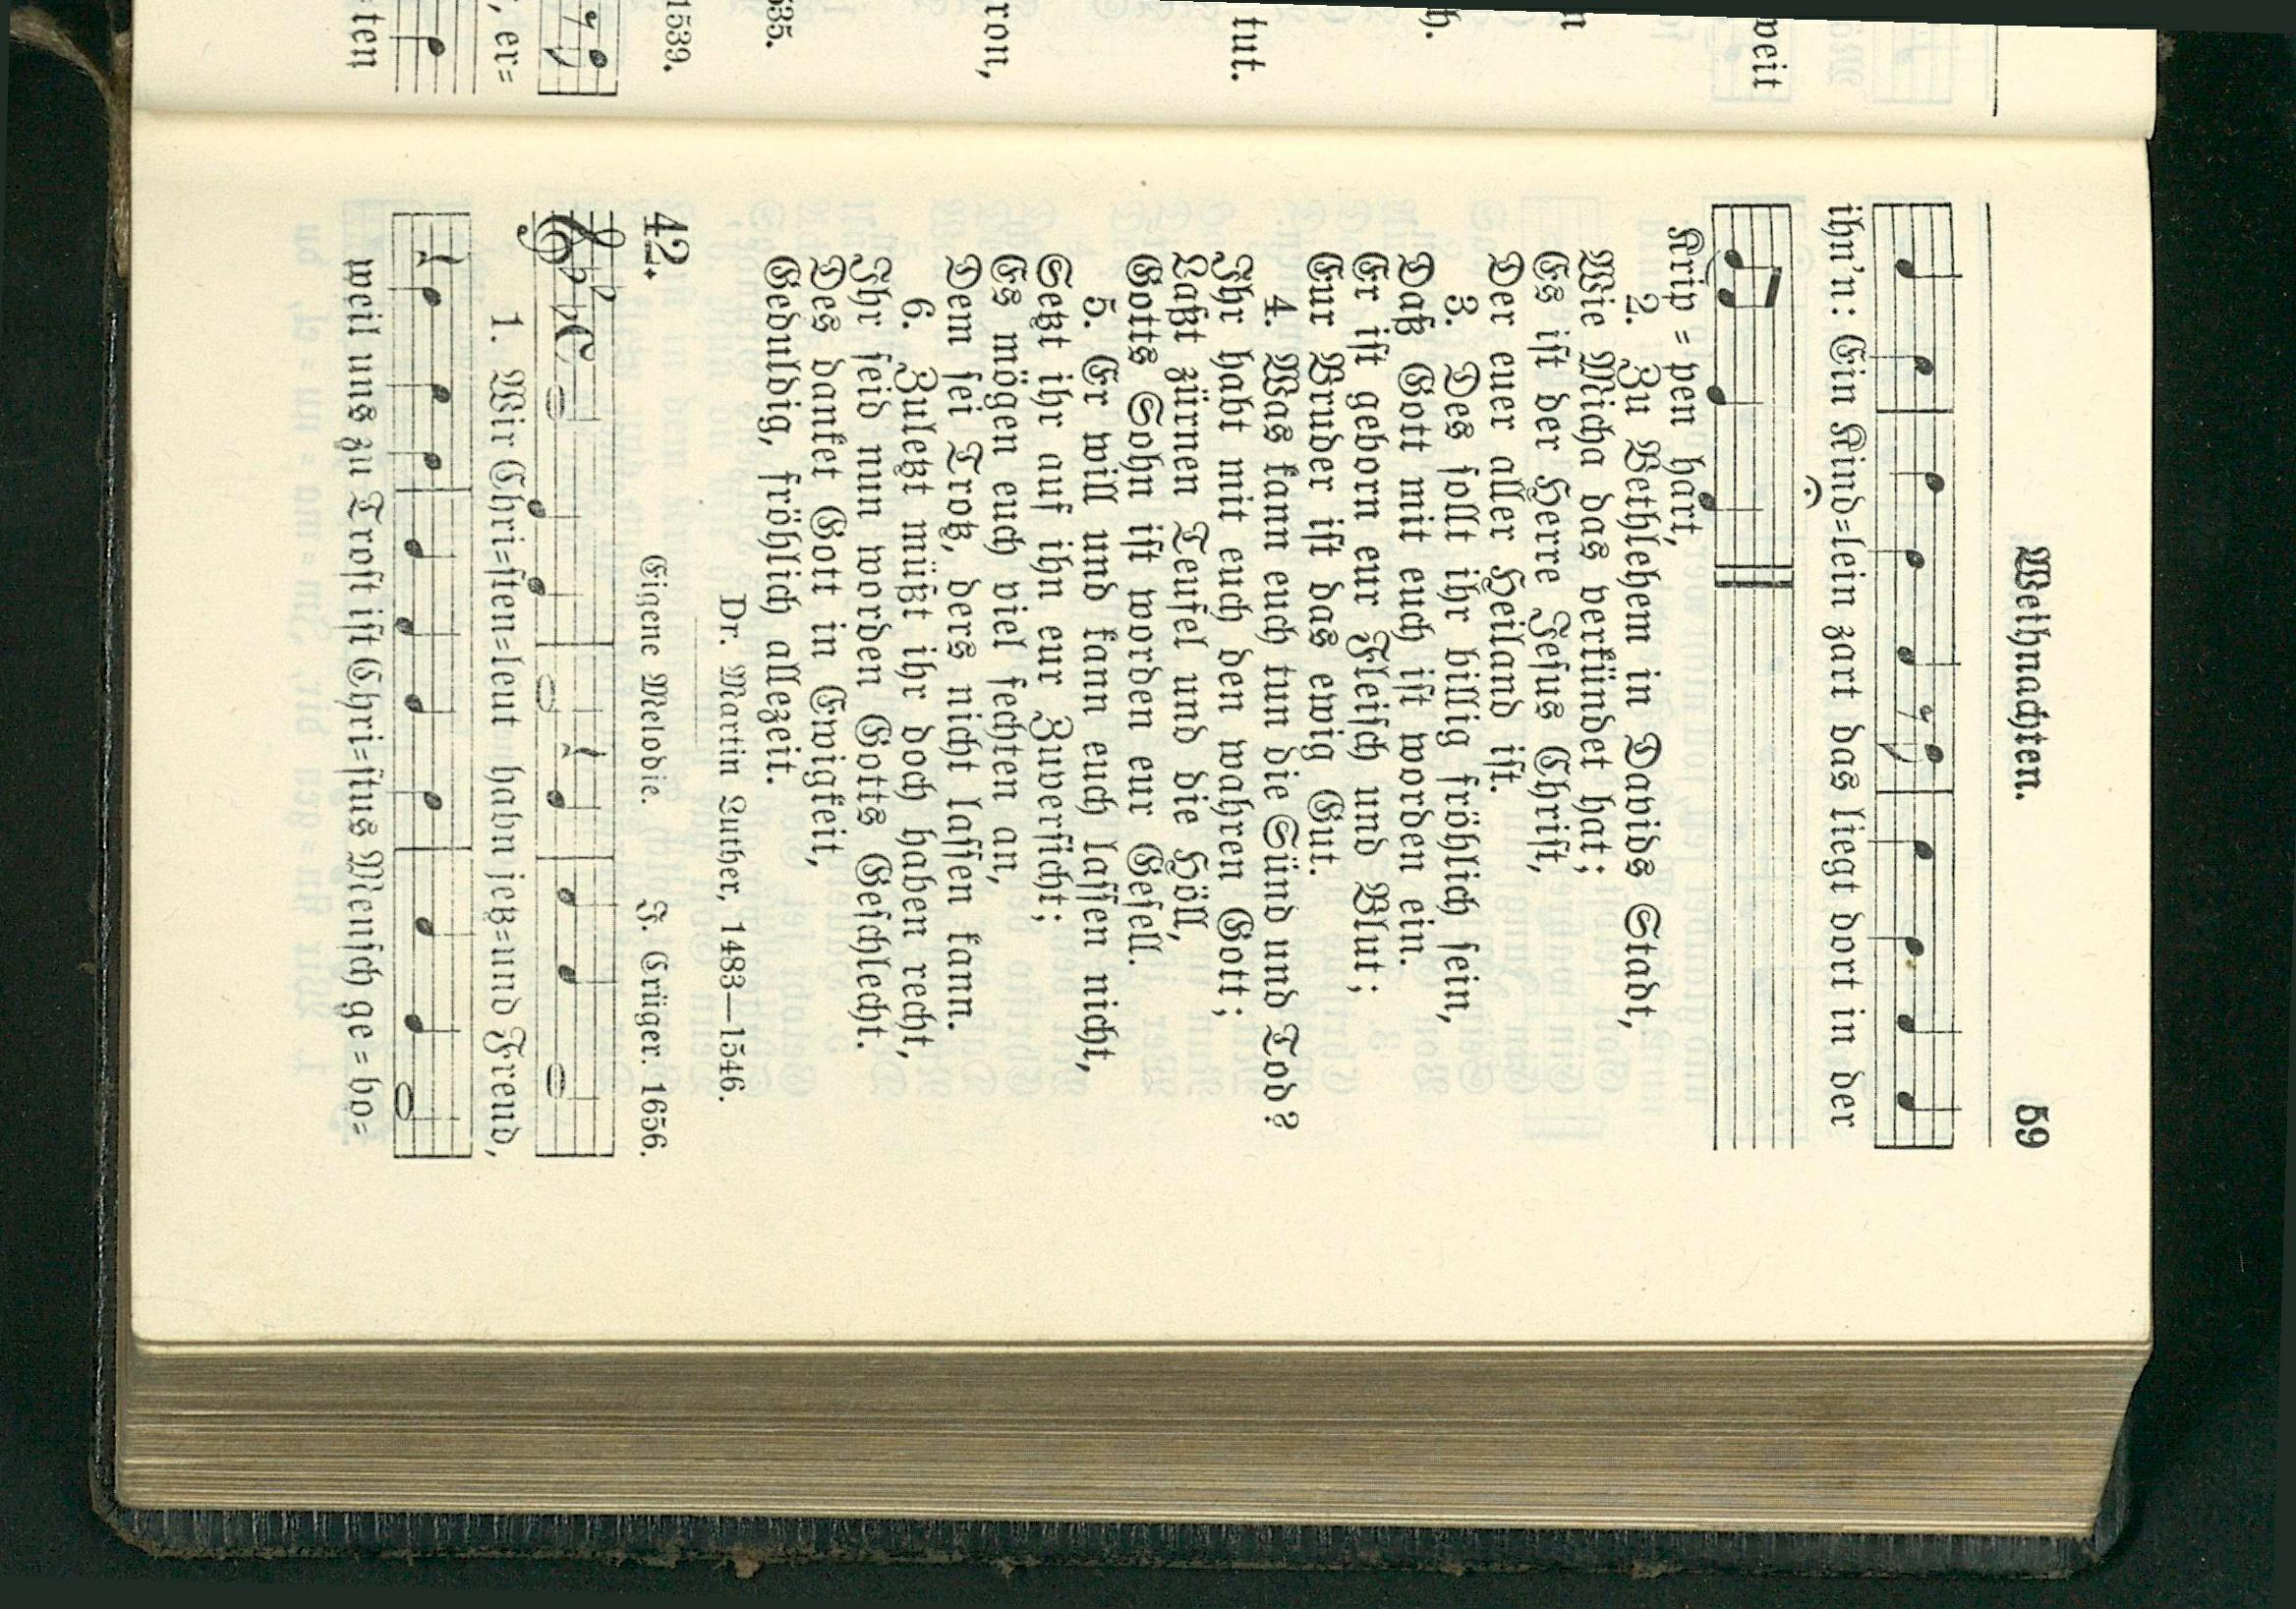 Weihnachten. 59
ihn'n: Ein Kind=lein zart das liegt dort in der
Krip = pen hart,
2. Zu Bethlehem in Davids Stadt,
Wie Micha das verkündet hat;
Es ist der Herre Jesus Christ,
Der euer aller Heiland ist.
3. Des sollt ihr billig fröhlich sein,
Daß Gott mit euch ist worden ein.
Er ist geborn eur Fleisch und Blut;
Eur Bruder ist das ewig Gut.
4. Was kann euch tun die Sünd und Tod?
Ihr habt mit euch den wahren Gott;
Laßt zürnen Teufel und die Höll,
Gotts Sohn ist worden eur Gesell.
5. Er will und kann euch lassen nicht,
Setzt ihr auf ihn eur Zuversicht;
Es mögen euch viel fechten an,
Dem sei Trotz, ders nicht lassen kann.
6. Zuletzt müßt ihr doch haben recht,
Ihr seid nun worden Gotts Geschlecht.
Des danket Gott in Ewigkeit,
Geduldig, fröhlich allezeit.
Dr. Martin Luther, 1483—1546.
42. Eigene Melodie. J. Crüger. 1656.
1. Wir Chri=sten=leut habn jetz=und Freud,
weil uns zu Trost ist Chri=stus Mensch ge = bo=
weit
h.
tut.
ron,
535.
1539.
, er=
=ten